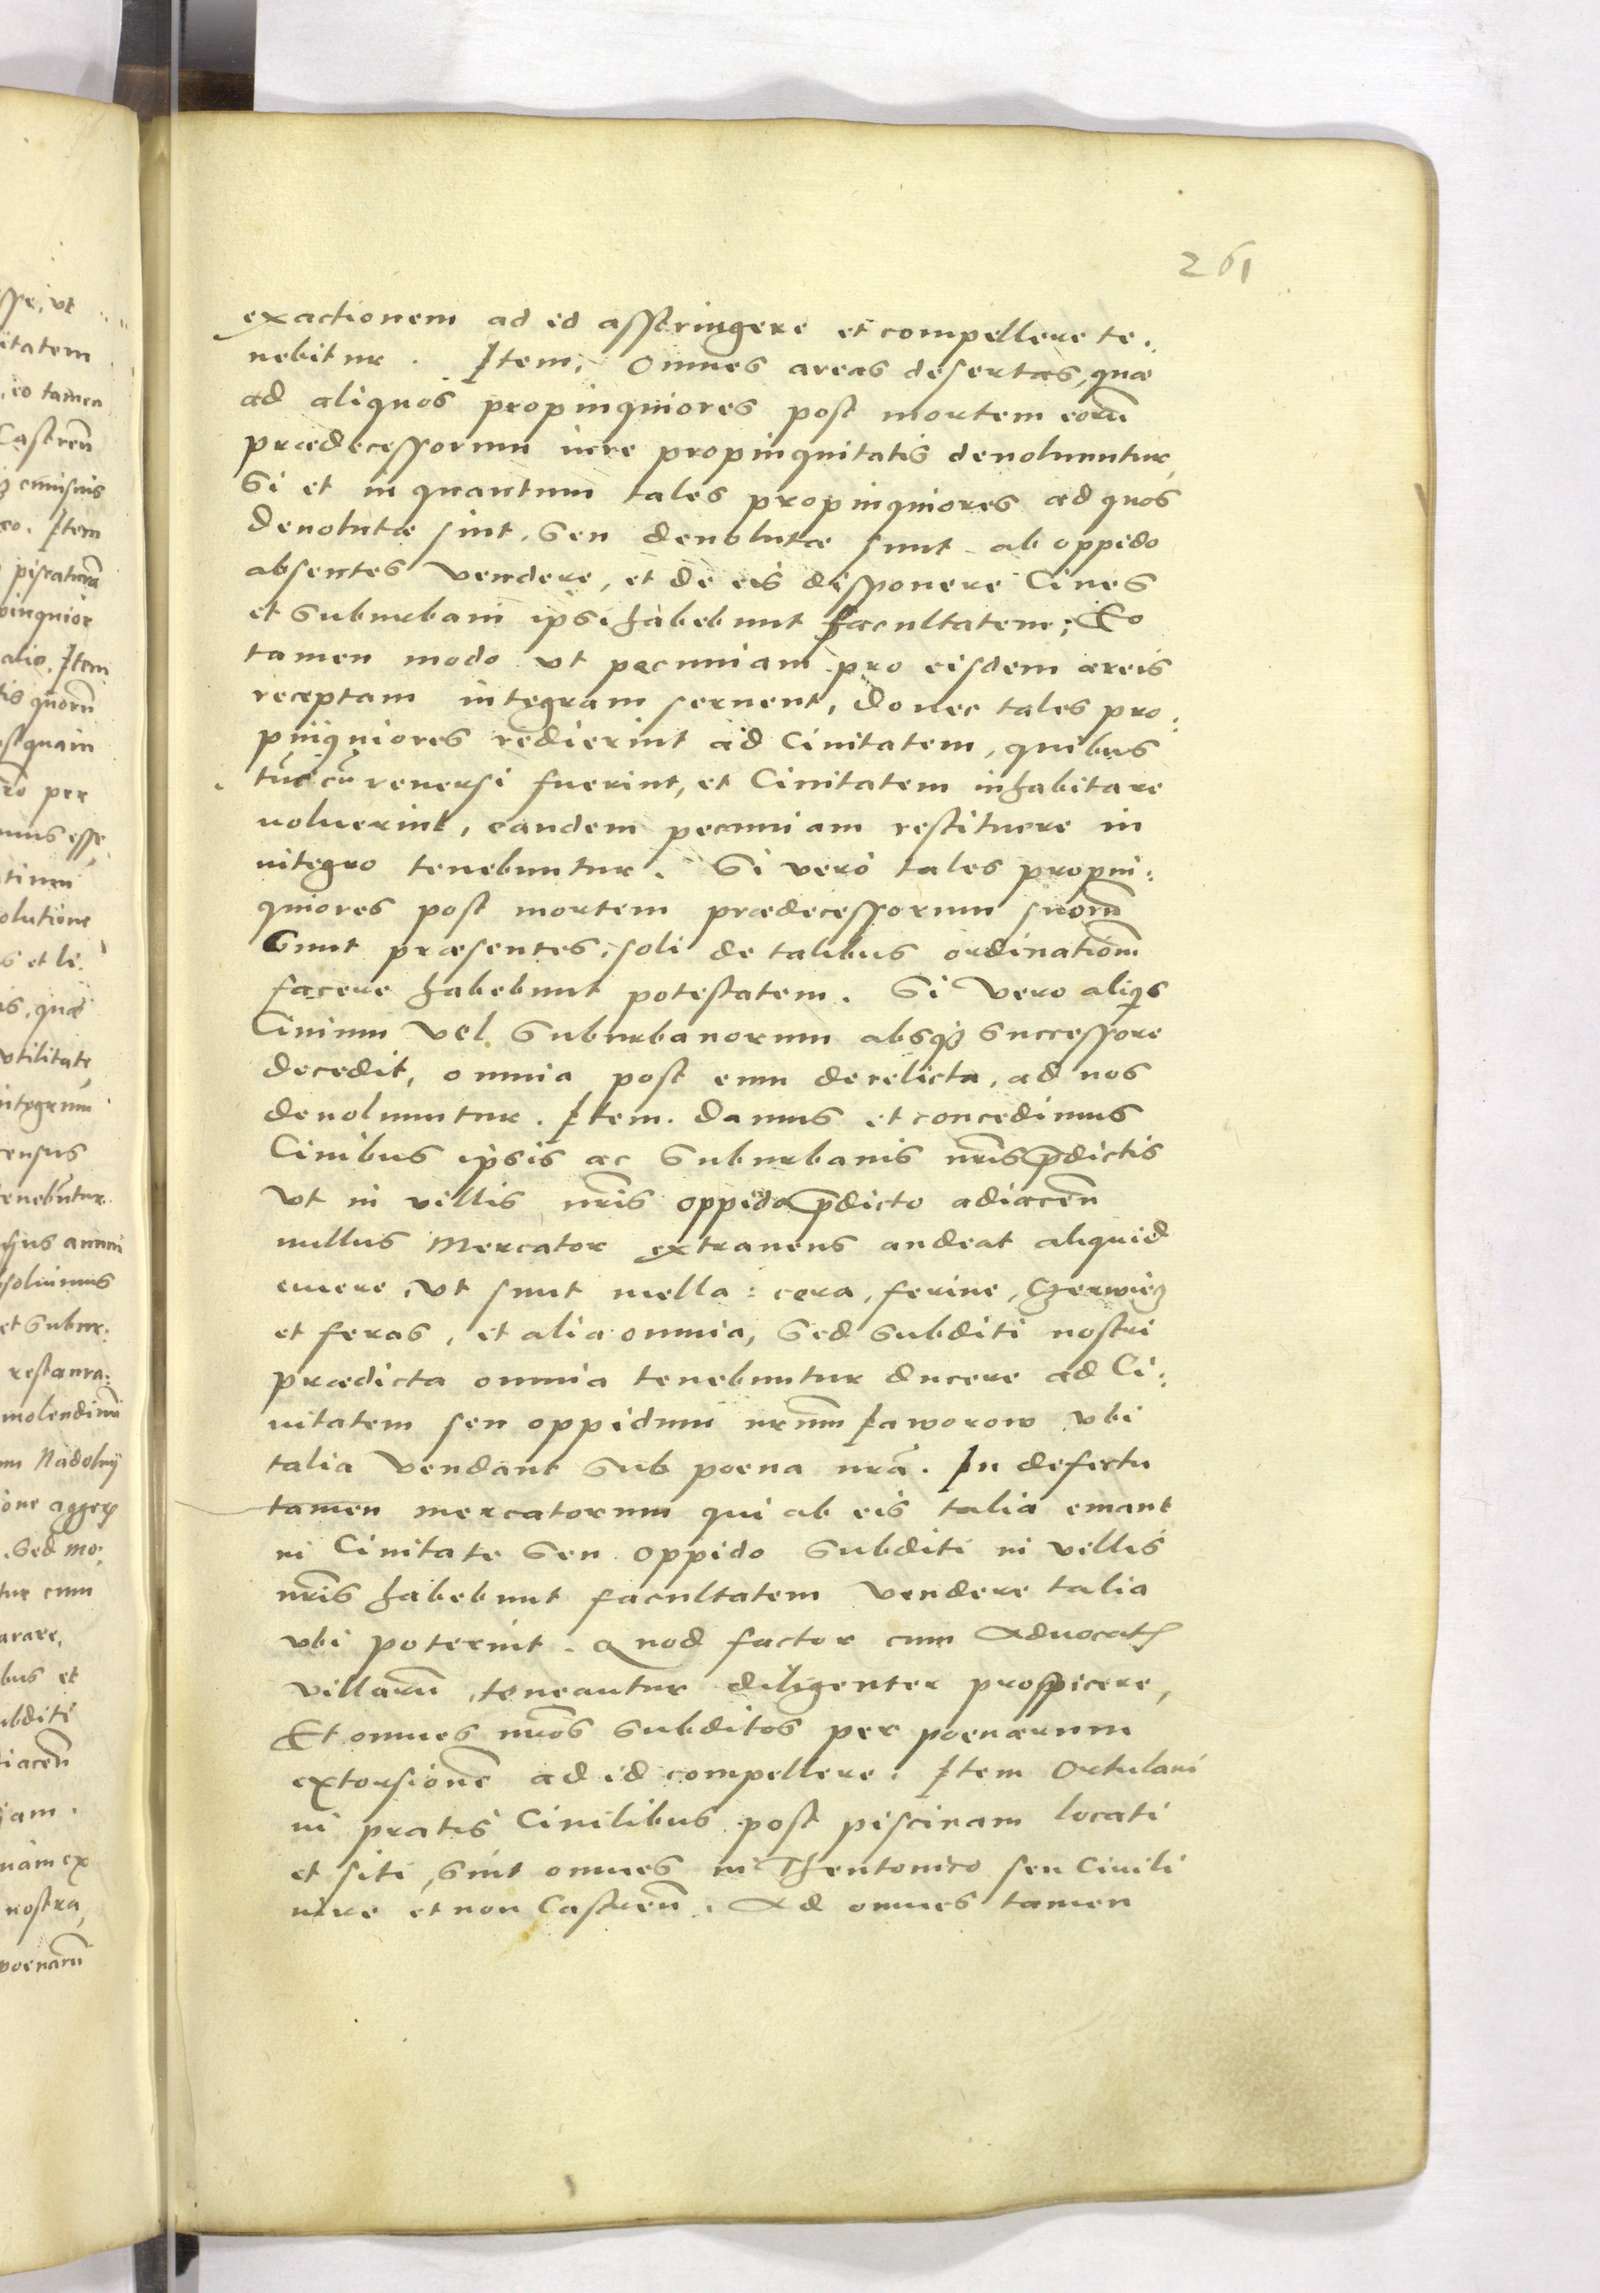 261
exactionem ad id asstringere et compellere te:
nebitur. Item, Omnes areas desertas, quæ
ad aliquos propinquiores post mortem eorū
prædecessorum iure propinquitatis deuoluuntur,
Si et in quantum tales propinquiores ad quos
deuolutæ sint, seu deuolutæ sunt ab oppido
absentes vendere, et de eis disponere Ciues
et suburbani ipsi habebunt facultatem; Eo
tamen modo vt pecuniam pro eisdem areis
receptam integram seruent, donec tales pro:
pinquiores redierint ad Ciuitatem, quibus
tūc cū reuersi fuerint, et Ciuitatem inhabitare
uoluerint, eandem pecuniam restituere in
integro tenebuntur. Si vero tales propin:
quiores post mortem prædecessorum suorū
Sunt præsentes, soli de talibus ordinationē
facere habebunt potestatem. Si vero aliqs
Ciuium vel suburbanorum absqꝫ successore
decedit, omnia post eum derelicta, ad nos
deuoluuntur. Item. damus et concedimus
Ciuibus ipsis ac suburbanis nr̄is p̄dictis
vt in villis nr̄is oppido p̄dicto adiacen̄
nullus Mercator extraneus audeat aliquid
emere, vt sunt mella: cera, ferine, Czerwiecz
et feras, et alia omnia, sed subditi nostri
prædicta omnia tenebuntur ducere ad Ci:
uitatem seu oppidum nr̄um Iaworow vbi
talia vendant sub poena nr̄a. In defectu
tamen mercatorum qui ab eis talia emant
in Ciuitate seu oppido subditi in villis
nr̄is habebunt facultatem vendere talia
vbi poterint. Quod factor cum Aduocatis
villarū teneantur diligenter prospicere,
Et omnes nr̄os subditos per poenarum
extorsionē ad id compellere. Item Ortulani
in pratis Ciuilibus post piscinam locati
et siti, sint omnes in Theutonico seu Ciuili
iure et non Castren̄. Ad omnes tamen